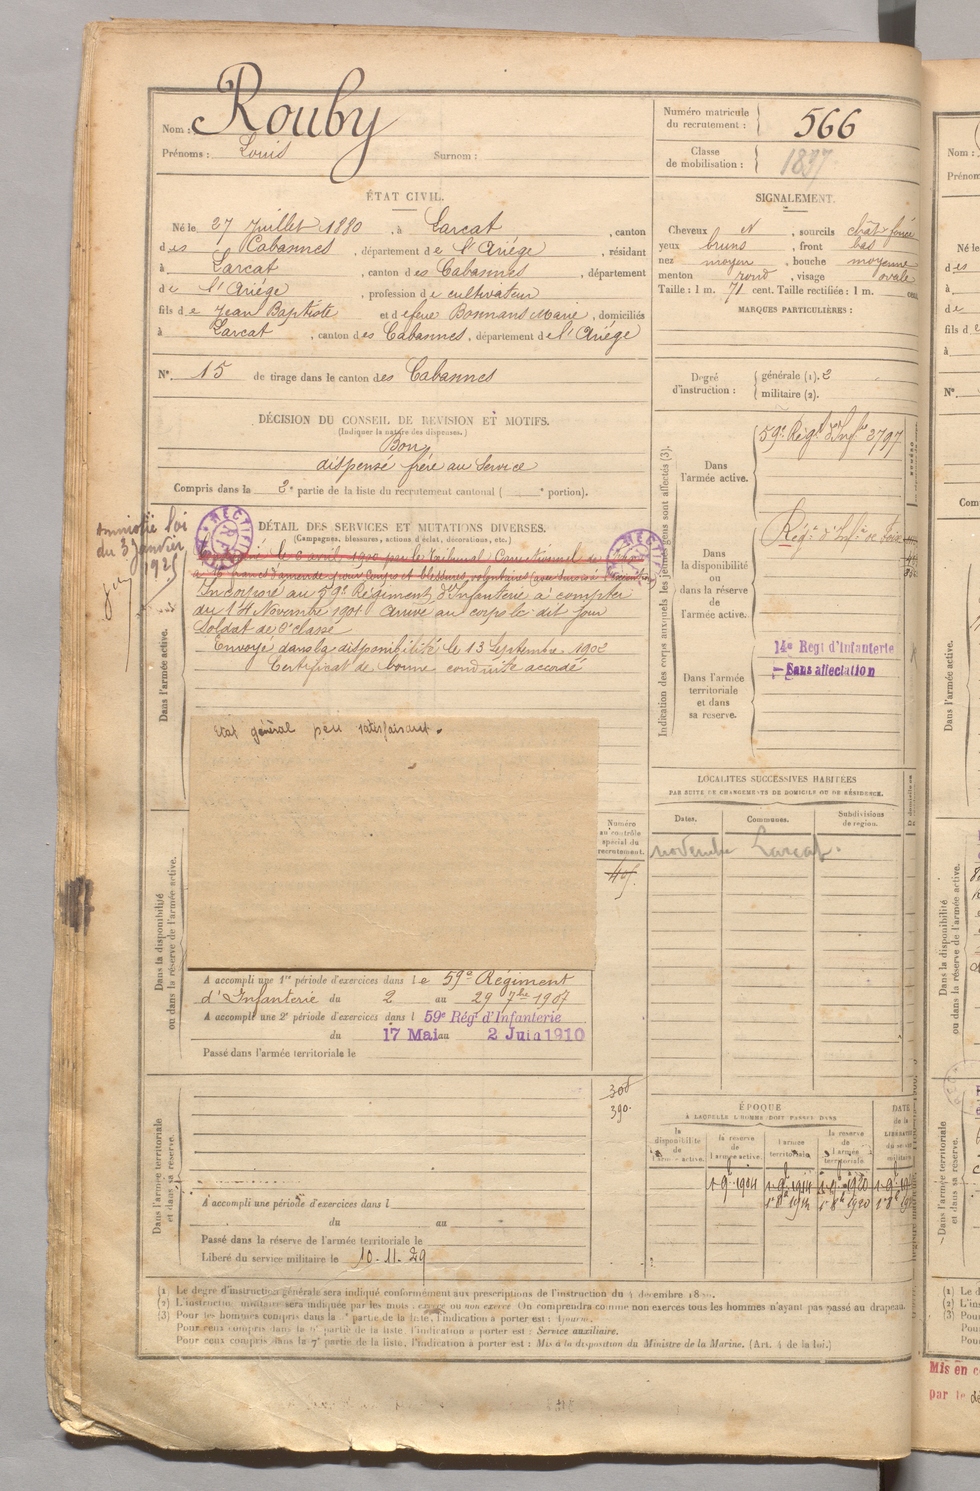 Nom : Rouby
Prénoms : Louis Surnom :
Numéro matricule du recrutement : 566
Classe de mobilisation : 1897
ÉTAT CIVIL.
Né le 27 Juillet 1880, à Larcat, canton
des Cabannes, département de l'Ariége, résidant
à Larcat, canton des Cabannes, département
de l'Ariége, profession de cultivateur
fils de Jean Baptiste et de feue Bonnans Marie, domiciliés
à Larcat, canton des Cabannes, département de l'Ariége
N° 15 de tirage dans le canton des Cabannes
SIGNALEMENT.
Cheveux N, sourcils chât foncé
yeux bruns, front bas
nez moyen, bouche moyenne
menton rond, visage ovale
Taille : 1 m. 71 cent. Taille rectifiée : 1 m. cent.
MARQUES PARTICULIÈRES :
Degré d'instruction : générale (1). 2
militaire (2).
DÉCISION DU CONSEIL DE REVISION ET MOTIFS.
(Indiquer la nature des dispenses.)
Bon
dispensé frère au Service
Compris dans la 2e partie de la liste du recrutement cantonal ( e portion).
Amnistié loi
du 3 Janvier
1925
DÉTAIL DES SERVICES ET MUTATIONS DIVERSES.
(Campagnes, blessures, actions d'éclat, décorations, etc.)
RECTIFIÉ
le 6 avril 1900 par le Tribunal Correctionnel de
à 16 francs d'amende pour Coups et blessures volontaires
Incorporé au 59e Régiment d'Infanterie à compter
du 14 Novembre 1901 Arrivé au corps le dit jour
Soldat de 2e classe
Envoyé dans la disponibilité le 13 Septembre 1902
Certificat de bonne conduite accordé
Dans l'armée active.
Etat général peu satisfaisant.
Indication des corps auxquels les jeunes gens sont affectés (3).
Dans l'armée active.
59e Régt d'Infie 3797
Dans la disponibilité ou dans la réserve de l'armée active.
Régt d'Infie de Foix
Dans l'armée territoriale et dans sa réserve.
14e Régt d'Infanterie
Sans affectation
LOCALITÉS SUCCESSIVES HABITÉES
PAR SUITE DE CHANGEMENTS DE DOMICILE OU DE RÉSIDENCE.
Dates. Communes. Subdivisions de région.
novembre Larcat.
Numéro au contrôle spécial du recrutement.
Dans la disponibilité
ou dans la réserve de l'armée active.
A accompli une 1re période d'exercices dans le 59e Régiment
d'Infanterie du 2 au 29 7bre 1907
A accompli une 2e période d'exercices dans l 59e Régt d'Infanterie
du 17 Mai au 2 Juin 1910
Passé dans l'armée territoriale le
308
390.
Dans l'armée territoriale
et dans sa réserve.
A accompli une période d'exercices dans l
du au
Passé dans la réserve de l'armée territoriale le
Libéré du service militaire le 10.11.29
ÉPOQUE
A LAQUELLE L'HOMME DOIT PASSER DANS
la disponibilité de l'armée active.
la réserve de l'armée active.
l'armée territoriale.
la réserve de l'armée territoriale.
DATE de la LIBÉRATION du service militaire
1 9bre 1904 1 9bre 1914 1 9bre 1920
1r 8bre 1914 1r 8bre 1920
(1) Le degré d'instruction générale sera indiqué conformément aux prescriptions de l'instruction du 4 décembre 1889.
(2) L'instruction militaire sera indiquée par les mots : exercé ou non exercé. On comprendra comme non exercés tous les hommes n'ayant pas passé au drapeau.
(3) Pour les hommes compris dans la partie de la liste, l'indication à porter est : Ajourné.
Pour ceux compris dans la 5e partie de la liste, l'indication à porter est : Service auxiliaire.
Pour ceux compris dans la 7e partie de la liste, l'indication à porter est : Mis à la disposition du Ministre de la Marine. (Art. 4 de la loi.)
Nom :
Prénom
Né le
N°
Com
Dans l'armée active.
Dans la disponibilité
ou dans la réserve de l'armée active.
Dans l'armée territoriale
et dans sa réserve.
Mis en
par le